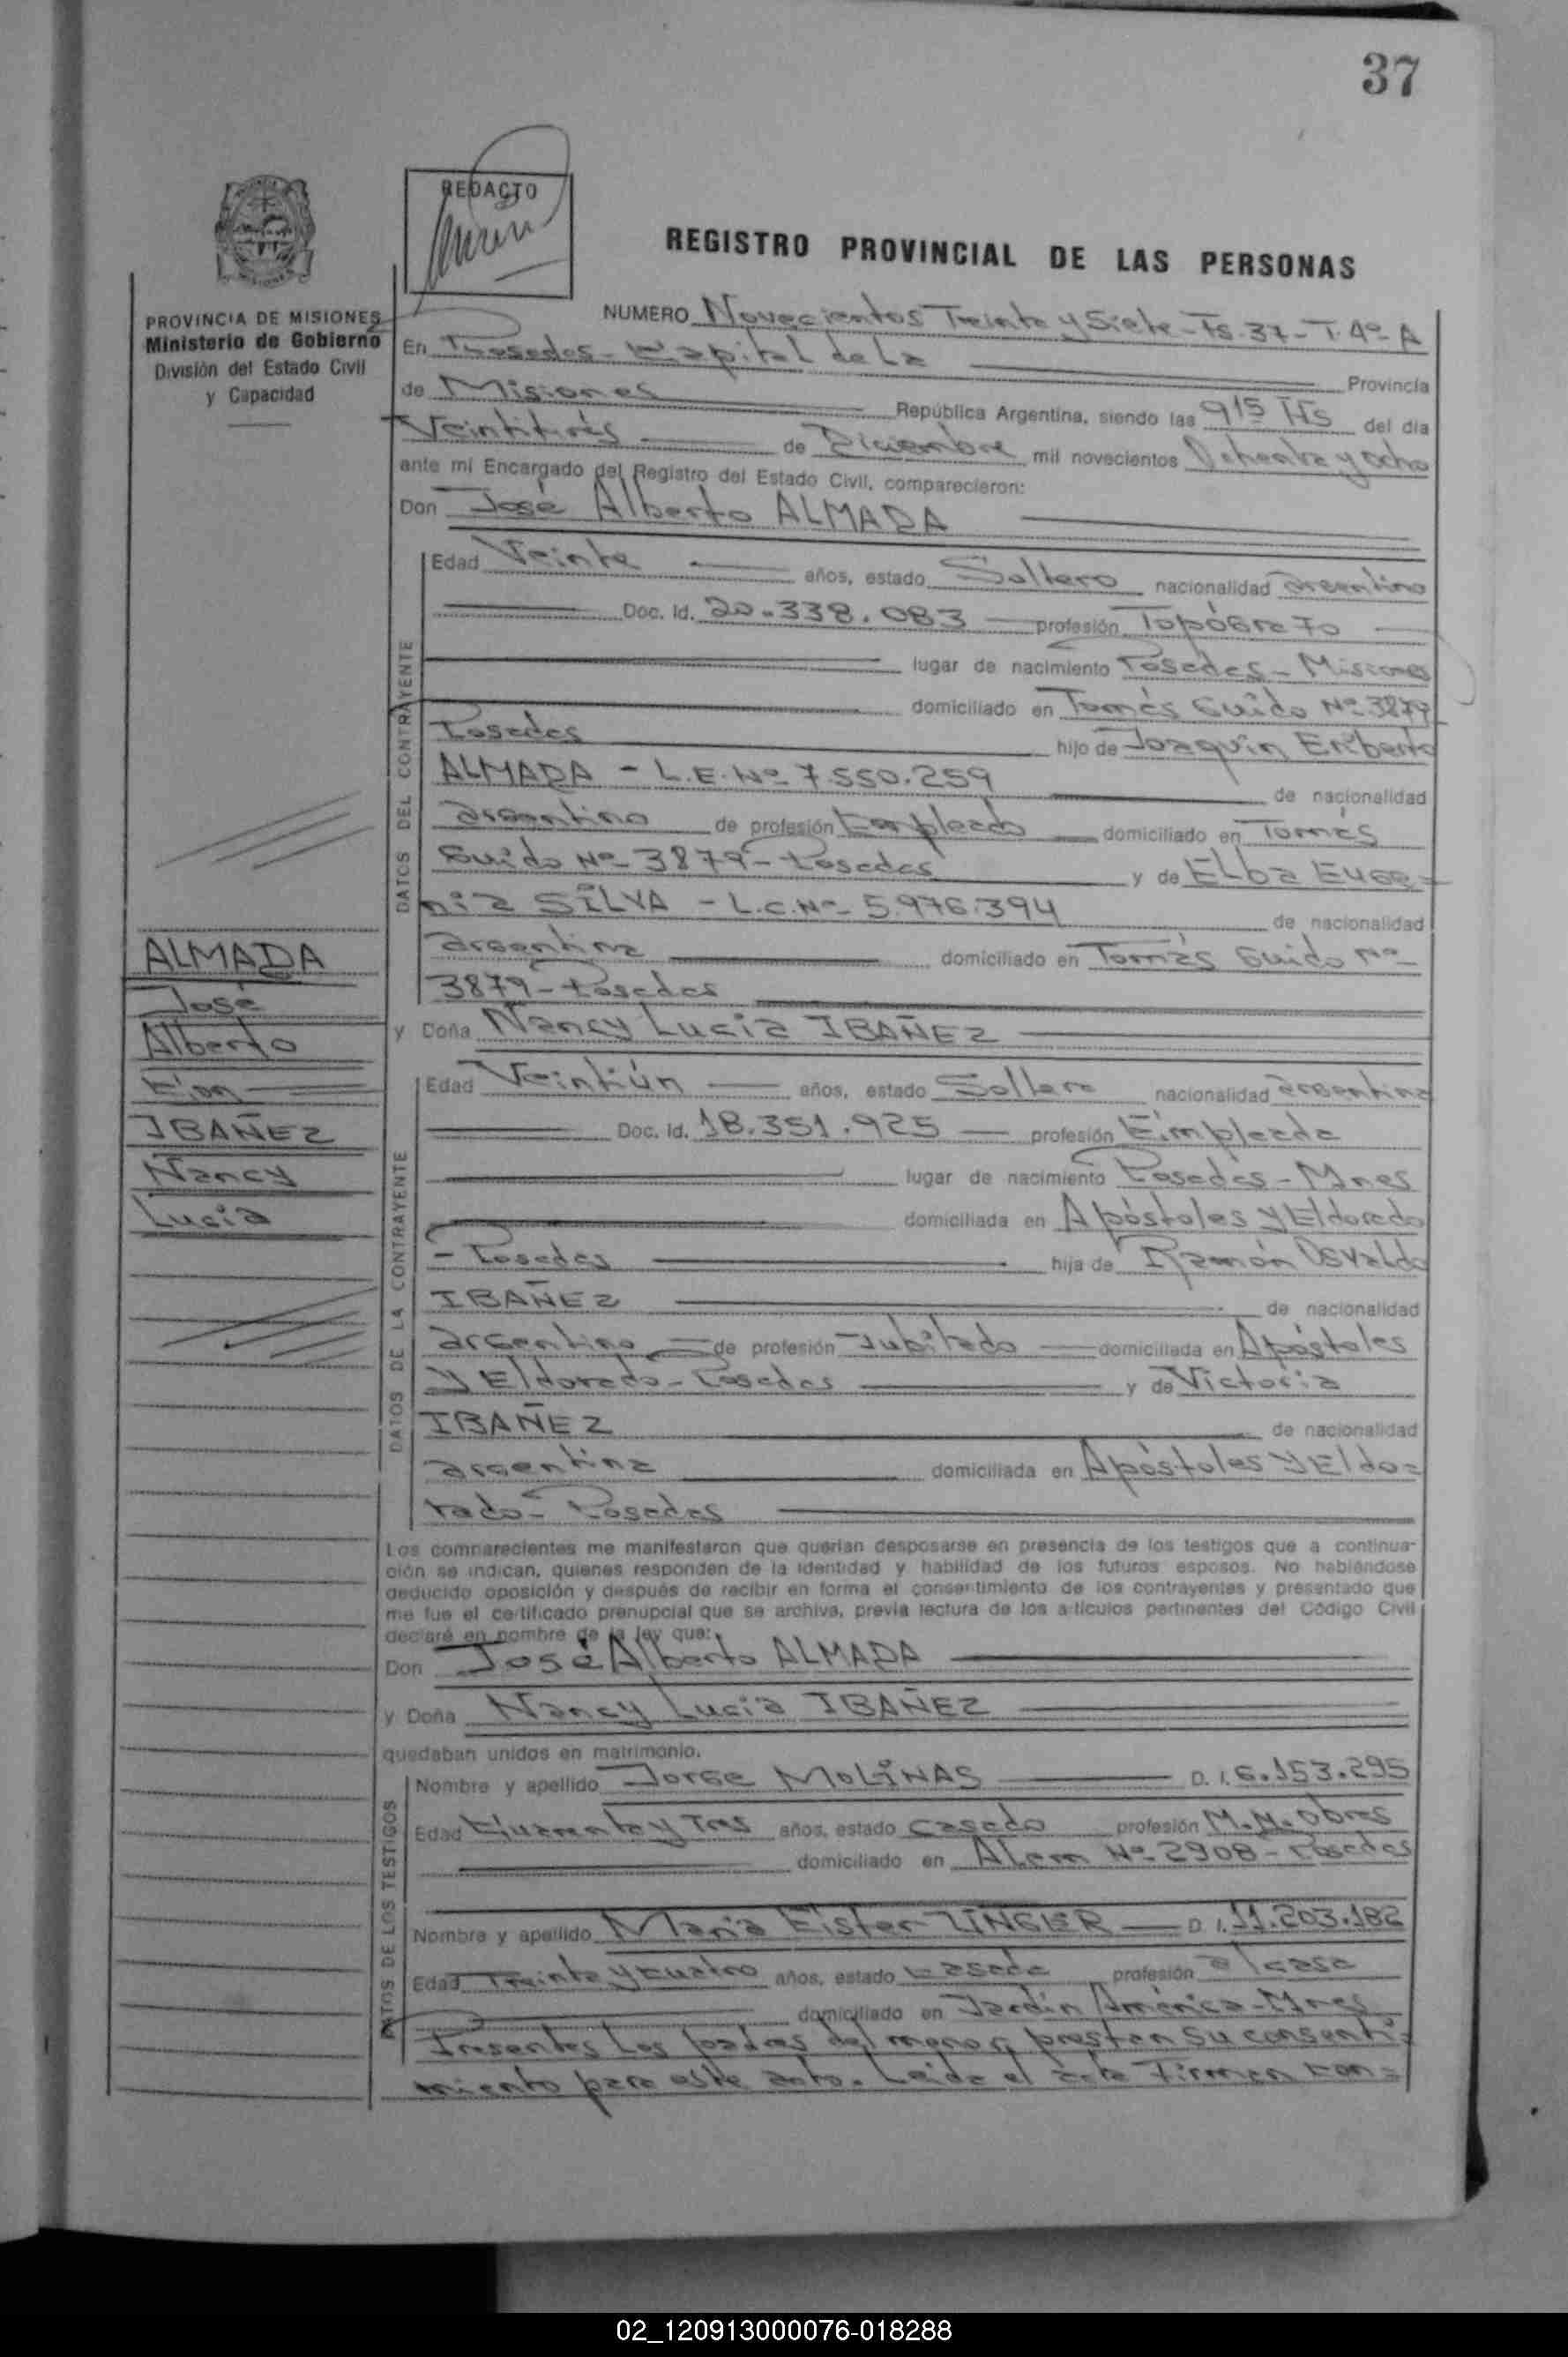 37
REDACTO
REGISTRO PROVINCIAL DE LAS PERSONAS
PROVINCIA DE MISIONES
Ministerio de Gobierno
División del Estado Civil
y Capacidad
NUMERO Novecientos Treinta y Siete - Fs. 37 - T. 4º - A
En Posadas - Capital de La Provincia
de Misiones República Argentina, siendo las 9 15 Hs del día
Veintitrés de Diciembre mil novecientos Ochenta y ocho
ante mi Encargado del Registro del Estado Civil, comparecieron:
Don José Alberto ALMADA
DATOS DEL CONTRAYENTE
Edad Veinte años, estado Soltero nacionalidad argentino
Doc. Id. 20.338.083 profesión Topógrafo
lugar de nacimiento Posadas - Misiones
domiciliado en Tomás Guido Nº 3879
Posadas hijo de Joaquín Eriberto
ALMADA - L.E. Nº 7.550.259 de nacionalidad
argentino de profesión Empleado domiciliado en Tomás
Guido Nº 3879 - Posadas y de Elba Euge=
nia SILVA - L.C. Nº 5.976.394 de nacionalidad
argentina domiciliado en Tomás Guido Nº
3879 - Posadas
ALMADA
José
Alberto
Con
IBAÑEZ
Nancy
Lucia
y Doña Nancy Lucia IBAÑEZ
DATOS DE LA CONTRAYENTE
Edad Veintiún años, estado Soltera nacionalidad argentina
Doc. Id. 18.351.925 profesión Empleada
lugar de nacimiento Posadas - Mnes
domiciliada en Apóstoles y Eldorado
- Posadas hija de Ramón Osvaldo
IBAÑEZ de nacionalidad
argentino de profesión Jubilado domiciliada en Apóstoles
y Eldorado - Posadas y de Victoria
IBAÑEZ de nacionalidad
argentina domiciliada en Apóstoles y Eldo=
rado - Posadas
Los comparecientes me manifestaron que querían desposarse en presencia de los testigos que a continua-
ción se indican, quienes responden de la identidad y habilidad de los futuros esposos. No habiéndose
deducido oposición y después de recibir en forma el consentimiento de los contrayentes y presentado que
me fue el certificado prenupcial que se archiva, previa lectura de los artículos pertinentes del Código Civil
declaré en nombre de la ley que:
Don José Alberto ALMADA
y Doña Nancy Lucia IBAÑEZ
quedaban unidos en matrimonio.
DATOS DE LOS TESTIGOS
Nombre y apellido Jorge MOLINAS D. I. 6.153.295
Edad Cuarenta y Tres años, estado casado profesión M.M. Obras
domiciliado en Alem Nº 2908 - Posadas
Nombre y apellido Maria Ester ZINGLER D. I. 11.203.182
Edad Treinta y cuatro años, estado casada profesión a/casa
domiciliado en Jardín América - Mnes
Presentes los padres del menor, prestan su consenti=
miento para este acto. Leída el acta firman con=
02_120913000076-018288